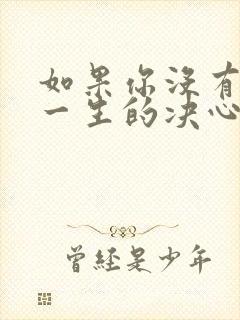 如果你没有
一生的决心
曾经是少年